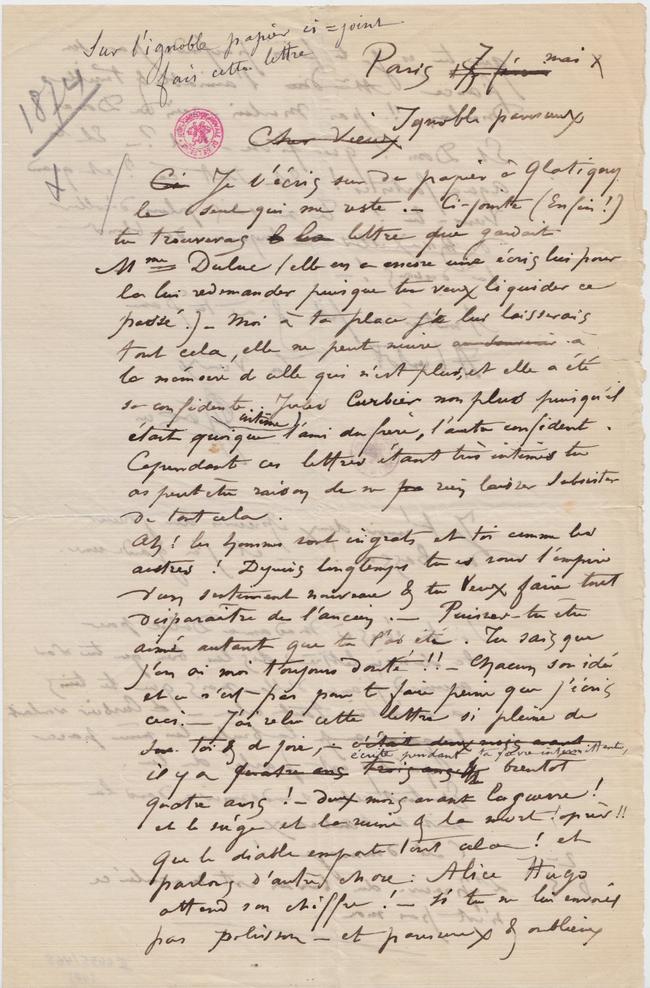 Sur l'ignoble papier ci-joint
fais cette lettre
1874
Paris 7 mai
Cher Vieux Ignoble paresseux
Je t'écris sur du papier à Glatigny
le seul qui me reste. — Ci-jointe (Enfin!)
tu trouveras la lettre que gardait
Mme Duluc (elle en a encore une écris lui pour
la lui redemander puisque tu veux liquider ce
passé.) — Moi à ta place je lui laisserais
tout cela, elle ne peut nuire au souvenir à
la mémoire d celle qui n'est plus, et elle a été
sa confidente. Jules non plus puisqu'il
était quasique intime l'ami du frère, l'autre confident.
Cependant ces lettres étant très intimes tu
as peut-être raison de ne rien laisser subsister
de tout cela.
Ah! les hommes sont ingrats et toi comme les
autres! Depuis longtemps tu es sous l'empire
d'un sentiment nouveau & tu veux faire tout
disparaître de l'ancien. — Puisses-tu être
aimé autant que tu l'as été. Tu sais que
j'en ai moi toujours douté!! — Chacun son idée
et ce n'est pas pour te faire peine que j'écris
ceci. — J'ai relu cette lettre si pleine de
toi & de joie, — c'était deux mois avant
écrite pendant ta fièvre intermittente,
il y a quatre ans trois ans bientot
quatre ans! — deux mois avant la guerre!
et le siège et la ruine & la mort! après!!
que le diable emporte tout cela! et
parlons d'autre chose: Alice Hugo
attend son chiffre! — Si tu ne lui envoies
pas polisson — et paresseux & oublieux